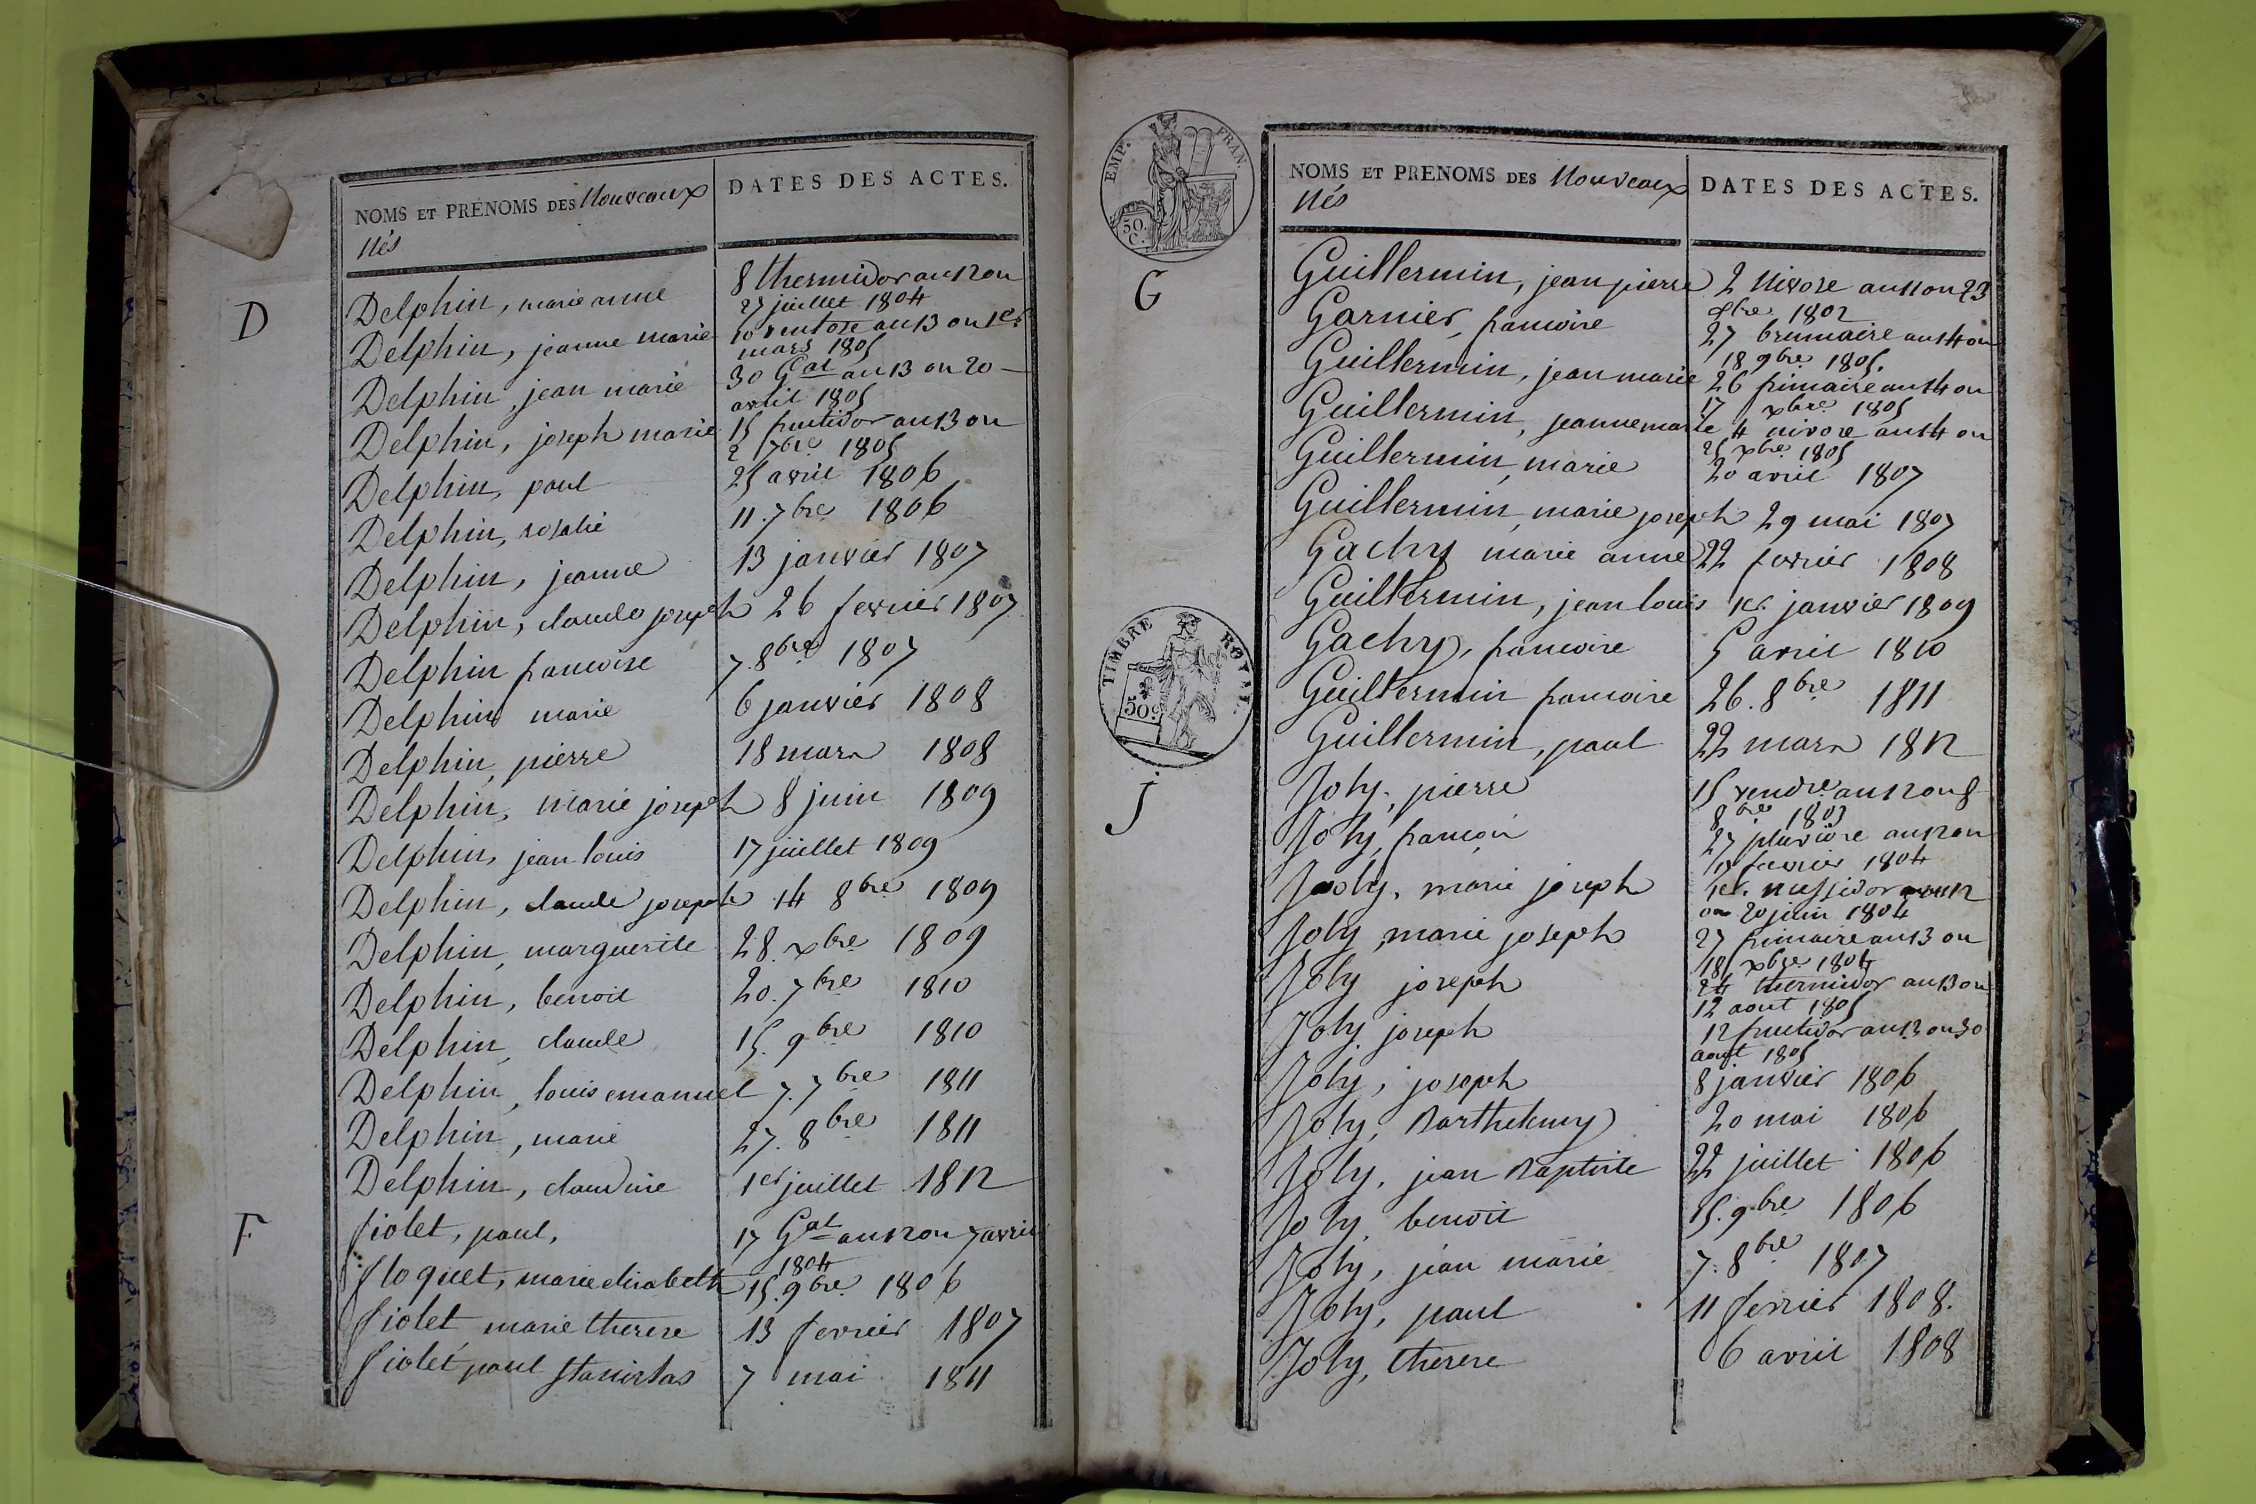 NOMS ET PRÉNOMS DES Nouveaux
Nés
DATES DES ACTES.
D
Delphin, marie anne
8 thermidor an 12 ou
27 juillet 1804
Delphin, jeanne marie
10 ventose an 13 ou 1er
mars 1805
Delphin, jean marie
30 Gal an 13 ou 20
avril 1805
Delphin, joseph marie
15 fructidor an 13 ou
2 7bre 1805
Delphin, paul
25 avril 1806
Delphin, rosalie
11. 7bre 1806
Delphin, jeanne
13 janvier 1807
Delphin, claude joseph
26 fevrier 1807
Delphin francoise
7. 8bre 1807
Delphin marie
6 janvier 1808
Delphin, pierre
18 mars 1808
Delphin, marie joseph
8 juin 1809
Delphin, jean louis
17 juillet 1809
Delphin, claude joseph
14 8bre 1809
Delphin, marguerite
28. xbre 1809
Delphin, benoit
20. 7bre 1810
Delphin, claude
15. 9bre 1810
Delphin, louis emanuel
7. 7bre 1811
Delphin, marie
27. 8bre 1811
Delphin, claudine
1er juillet 1812
F
fiolet, paul,
17 Gal an 12 ou 7 avril
1804
floquet, marie elisabeth
15. 9bre 1806
fiolet marie therese
13 fevrier 1807
fiolet, paul stanislas
7 mai 1811
EMP. FRAN.
50.
C.
NOMS ET PRÉNOMS DES Nouveaux
Nés
DATES DES ACTES.
G
Guillermin, jean pierre
2 Nivose an 11 ou 23
xbre 1802
Garnier, francoise
27 brumaire an 14 ou
18 9bre 1805.
Guillermin, jean marie
26 frimaire an 14 ou
17 xbre 1805
Guillermin, jeanne marie
4 nivose an 14 ou
25 xbre 1805
Guillermin, marie
20 avril 1807
Guillermin, marie joseph
29 mai 1807
Gachy marie anne
22 fevrier 1808
Guillermin, jean louis
1er. janvier 1809
Gachy, francoise
5 avril 1810
Guillermin francoise
26. 8bre 1811
Guillermin, paul
22 mars 1812
TIMBRE ROYAL.
50c
J
Joly, pierre
15 vendre an 12 ou 8
8bre 1803
Joly, françois
27 pluviose an 12 ou
17 fevrier 1804
Joly, marie joseph
1er. messidor an 12
ou 20 juin 1804
Joly, marie joseph
27 frimaire an 13 ou
18 xbre 1804
Joly joseph
24 thermidor an 13 ou
12 aout 1805
Joly joseph
12 fructidor an 13 ou 30
aout 1805
Joly, joseph
8 janvier 1806
Joly, Barthelemy
20 mai 1806
Joly, jean Baptiste
22 juillet 1806
Joly, benoit
15. 9bre 1806
Joly, jean marie
7. 8bre 1807
Joly, paul
11 fevrier 1808.
Joly, therese
6 avril 1808